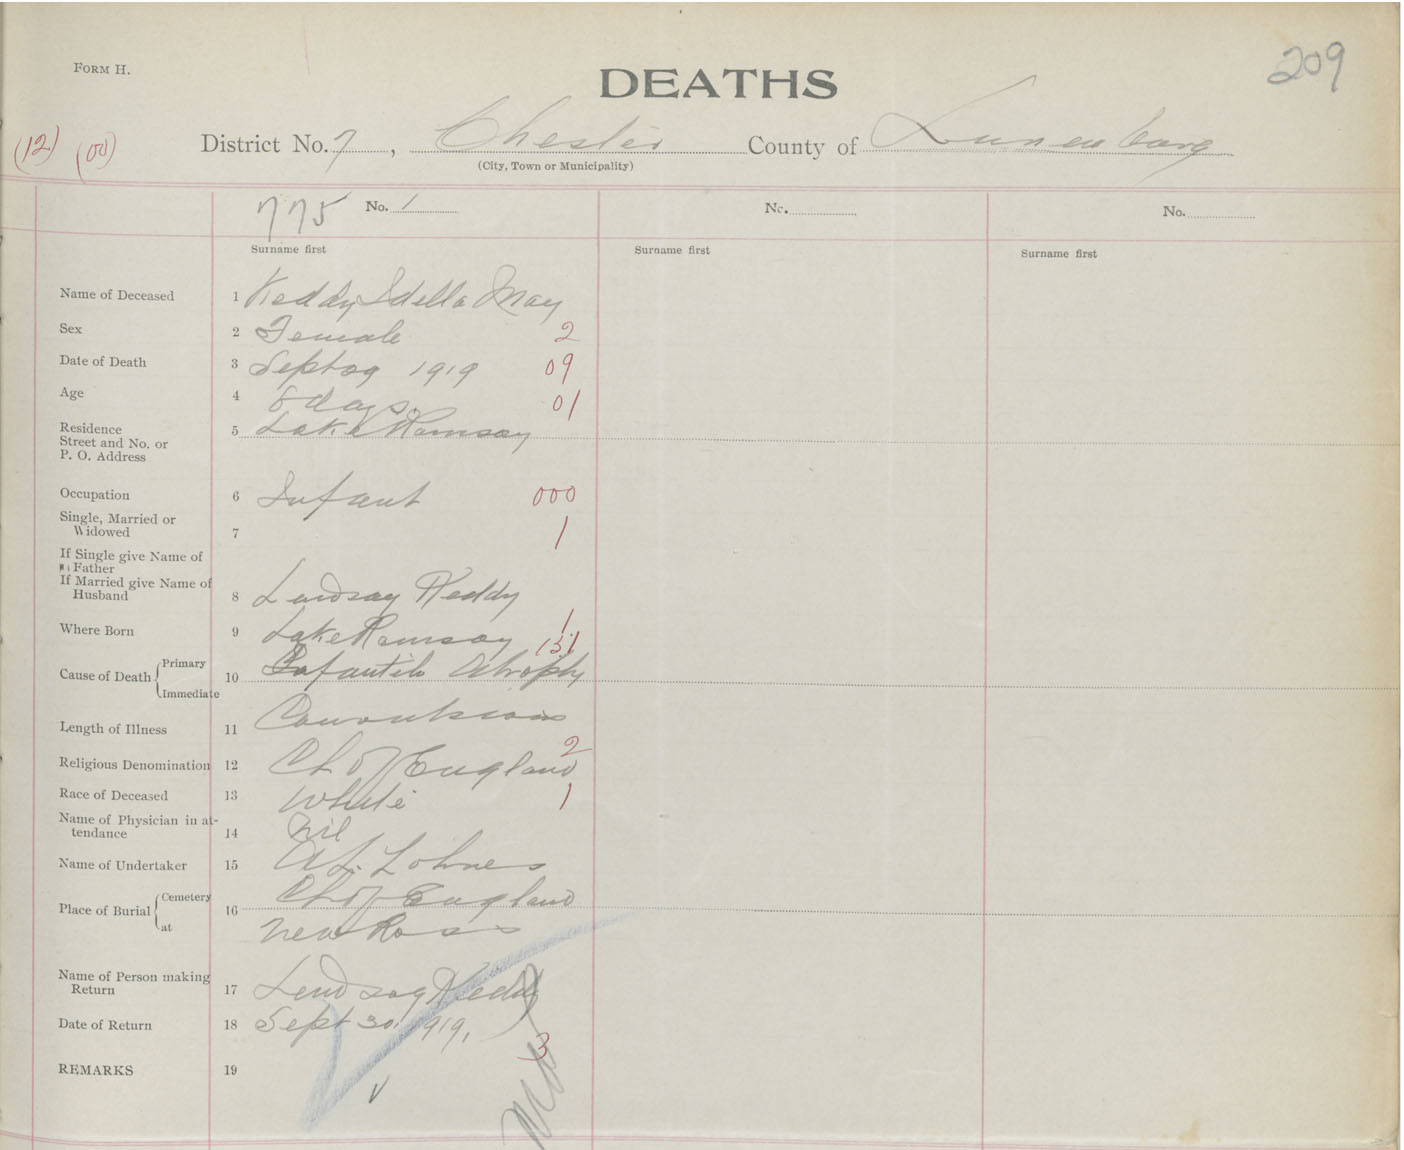 FORM H.
DEATHS
209
(12) (00)
District No. 7, Chester County of Lunenburg
(City, Town or Municipality)
775 No. 1 No. No.
Surname first Surname first Surname first
Name of Deceased 1 Keddy Idella May
Sex 2 Female 2
Date of Death 3 Sept 09 1919 09
Age 4 8 days. 01
Residence
Street and No. or 5 Lake Ramsay
P. O. Address
Occupation 6 Infant 000
Single, Married or
Widowed 7 1
If Single give Name of
Father
If Married give Name of
Husband 8 Lendsay Keddy
Where Born 9 Lake Ramsay 1
151
Cause of Death Primary 10 Infantile Atrophy
Immediate
Length of Illness 11 Convulsions
Religious Denomination 12 Ch of England 2
Race of Deceased 13 White 1
Name of Physician in at-
tendance 14 nil
Name of Undertaker 15 A L. Lohnes
Place of Burial Cemetery 16 Ch of England
at New Ross
Name of Person making
Return 17 Lendsay Keddy
Date of Return 18 Sept 30, 1919,
3
REMARKS 19